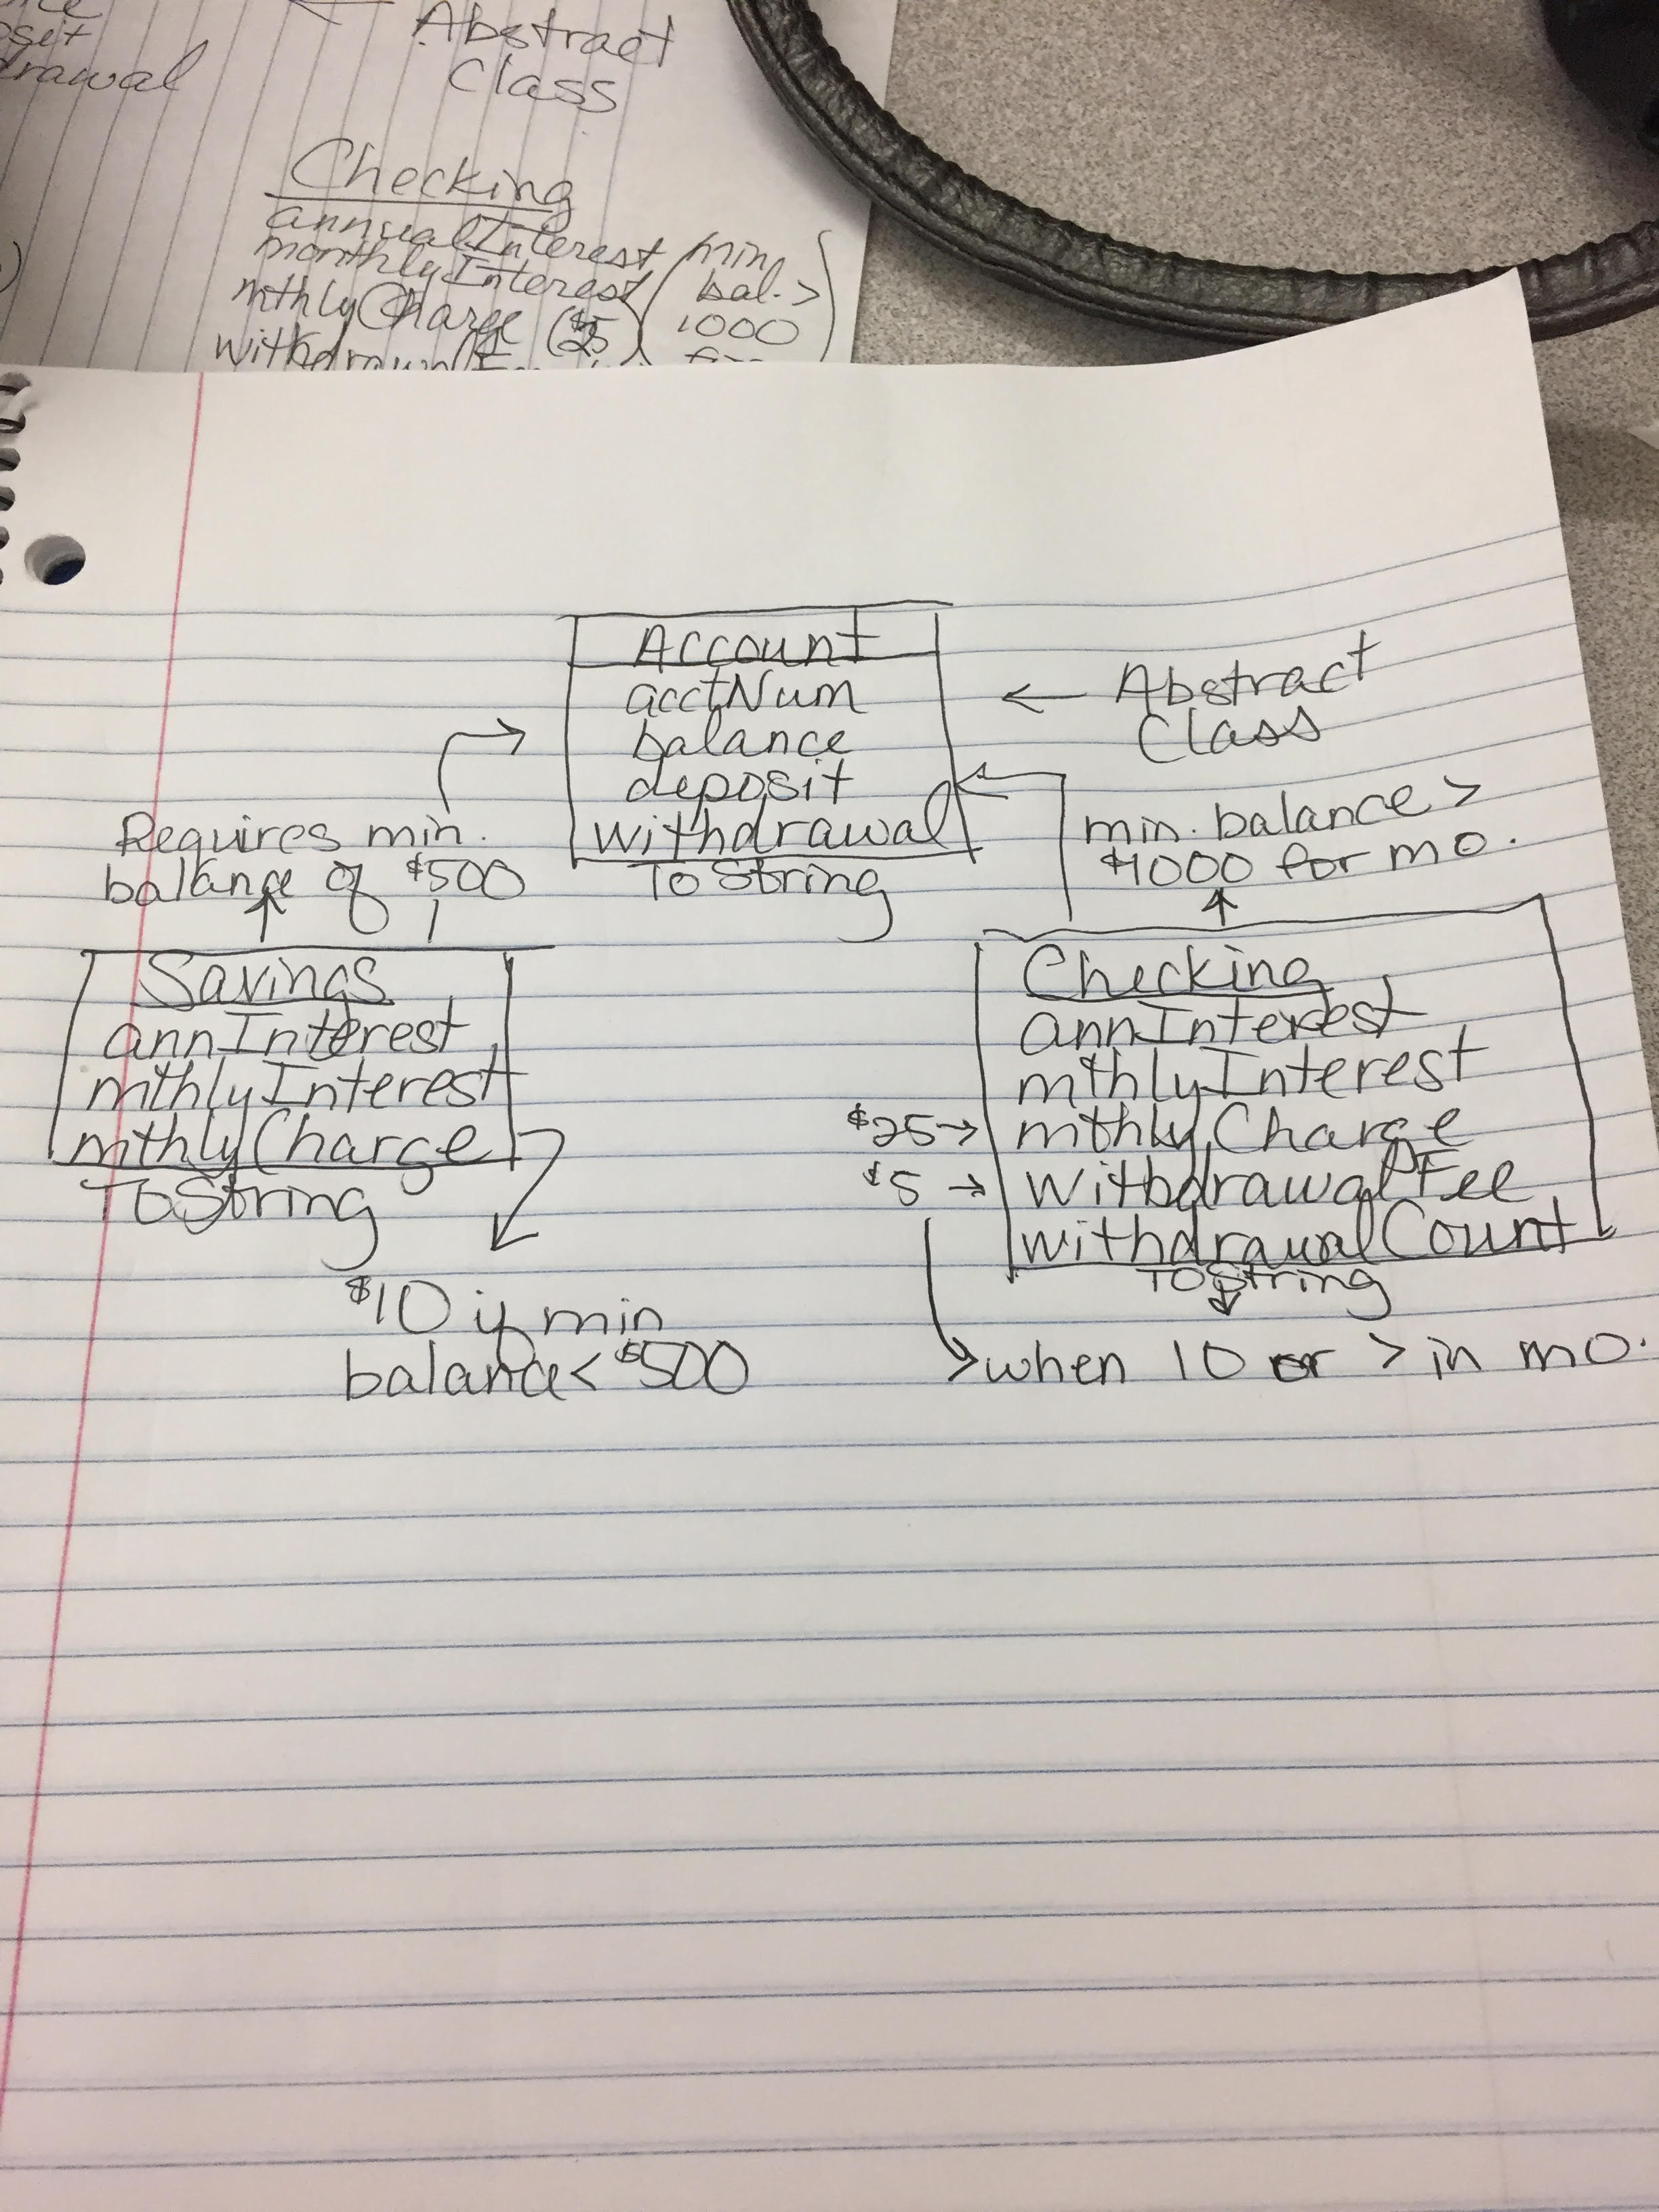 drawal
Abstract
Class
Checking
annualInterest
monthlyInterest
mthlyCharge
(min
bal. >
1000
Account
acctNum
balance
deposit
withdrawal
ToString
← Abstract
Class
Requires min.
balance of $500
min. balance >
$1000 for mo.
Savings
annInterest
mthlyInterest
mthlyCharge
ToString
$10 if min
balance < $500
Checking
annInterest
mthlyInterest
$25 → mthlyCharge
$5 → WithdrawalFee
withdrawalCount
ToString
when 10 or > in mo.